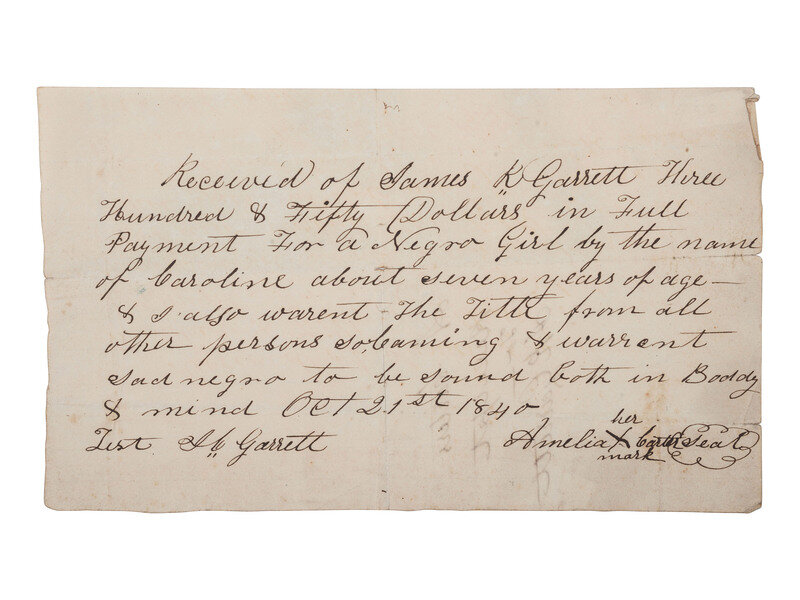 Received of James K Garrett Three
Hundred & Fifty Dollars in Full
Payment For a Negro Girl by the name
of Caroline about seven years of age —
& I also warent The Title from all
other persons so claming & warrent
sad negro to be sound both in Boddy
& mind Oct 21st 1840
her
Test Garrett Amelia X Carter Seal
mark